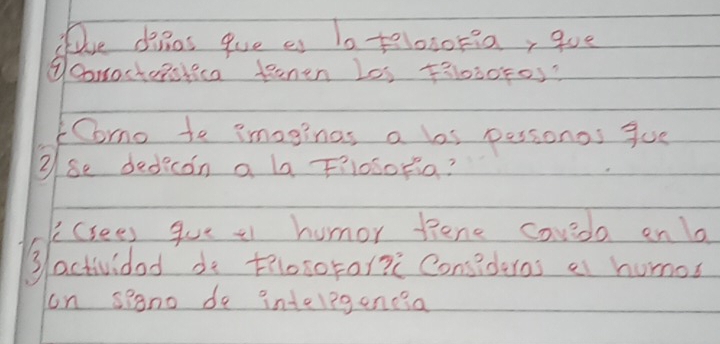 ¿Que dirias que es la filosofia, y que
1) Característica tienen Los filosofos?
¿Como te imaginas a las personas que
2) se dedicán a la Filosofia?
¿Crees que el humor tiene cavida en la
3) actividad de filosofar? ¿Consideras el humor
un signo de inteligencia